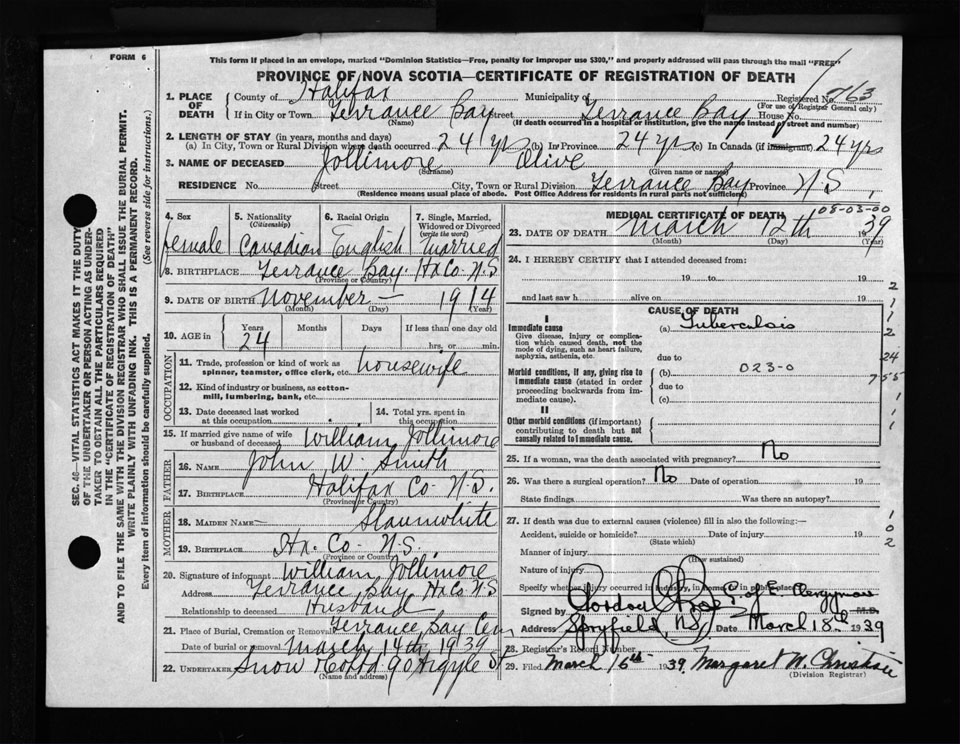 FORM 6
This form if placed in an envelope, marked "Dominion Statistics—Free, penalty for improper use $300," and properly addressed will pass through the mail "FREE"
PROVINCE OF NOVA SCOTIA—CERTIFICATE OF REGISTRATION OF DEATH
1. PLACE OF DEATH
County of Halifax Municipality of Registered No. 763
(For use of Registrar General only)
If in City or Town Terrance Bay Street Terrance Bay House No.
(Name) (If death occurred in a hospital or institution, give the name instead of street and number)
2. LENGTH OF STAY (in years, months and days)
(a) In City, Town or Rural Division where death occurred 24 yrs (b) In Province 24 yrs (c) In Canada (if immigrant) 24 yrs
3. NAME OF DECEASED Jollimore Olive
(Surname) (Given name or names)
RESIDENCE No. Street City, Town or Rural Division Terrance Bay Province N.S.
(Residence means usual place of abode. Post Office Address for residents in rural parts not sufficient)
4. Sex female
5. Nationality (Citizenship) Canadian
6. Racial Origin English
7. Single, Married, Widowed or Divorced (write the word) Married
8. BIRTHPLACE Terrance Bay. Hx Co. N.S
(Province or Country)
9. DATE OF BIRTH November — 1914
(Month) (Day) (Year)
10. AGE in Years Months Days If less than one day old
24 hrs. or min.
OCCUPATION
11. Trade, profession or kind of work as spinner, teamster, office clerk, etc. Housewife
12. Kind of industry or business, as cotton-mill, lumbering, bank, etc.
13. Date deceased last worked at this occupation
14. Total yrs. spent in this occupation
15. If married give name of wife or husband of deceased William Jollimore
FATHER
16. NAME John W. Smith
17. BIRTHPLACE Halifax Co. N.S.
(Province or Country)
MOTHER
18. MAIDEN NAME Slaunwhite
19. BIRTHPLACE Hx. Co. N.S.
(Province or Country)
20. Signature of informant William Jollimore
Address Terrance Bay Hx Co N.S
Relationship to deceased Husband
21. Place of Burial, Cremation or Removal Terrance Bay Cem
Date of burial or removal March 14th 1939
22. UNDERTAKER Snow & Co Ltd 90 Argyle St
(Name and address)
MEDICAL CERTIFICATE OF DEATH
08-03-00
23. DATE OF DEATH March 12th 1939
(Month) (Day) (Year)
24. I HEREBY CERTIFY that I attended deceased from:
19 to 19
and last saw h alive on 19
CAUSE OF DEATH
I
Immediate cause (a) Tuberculosis
Give disease, injury or complication which caused death, not the mode of dying, such as heart failure, asphyxia, asthenia, etc.
due to
Morbid conditions, if any, giving rise to immediate cause (stated in order proceeding backwards from immediate cause).
(b) 023-0
due to
(c)
II
Other morbid conditions (if important) contributing to death but not causally related to immediate cause.
2
1
1
2
24
755
1
1
1
25. If a woman, was the death associated with pregnancy? No
26. Was there a surgical operation? No Date of operation 19
State findings Was there an autopsy?
27. If death was due to external causes (violence) fill in also the following:—
Accident, suicide or homicide? Date of injury 19
(State which)
Manner of injury
(How sustained)
Nature of injury
Specify whether injury occurred in industry, in home, or in public place
1
0
2
Signed by C. of E. Clergyman M.D.
Address Spryfield, N.S. Date March 18th 1939
28. Registrar's Record Number
29. Filed March 16th 1939 Margaret W. Christie
(Division Registrar)
SEC. 46—VITAL STATISTICS ACT MAKES IT THE DUTY
OF THE UNDERTAKER OR PERSON ACTING AS UNDER-
TAKER TO OBTAIN ALL THE PARTICULARS REQUIRED
IN THE "CERTIFICATE OF REGISTRATION OF DEATH"
AND TO FILE THE SAME WITH THE DIVISION REGISTRAR WHO SHALL ISSUE THE BURIAL PERMIT.
WRITE PLAINLY WITH UNFADING INK. THIS IS A PERMANENT RECORD.
Every item of information should be carefully supplied. (See reverse side for instructions.)